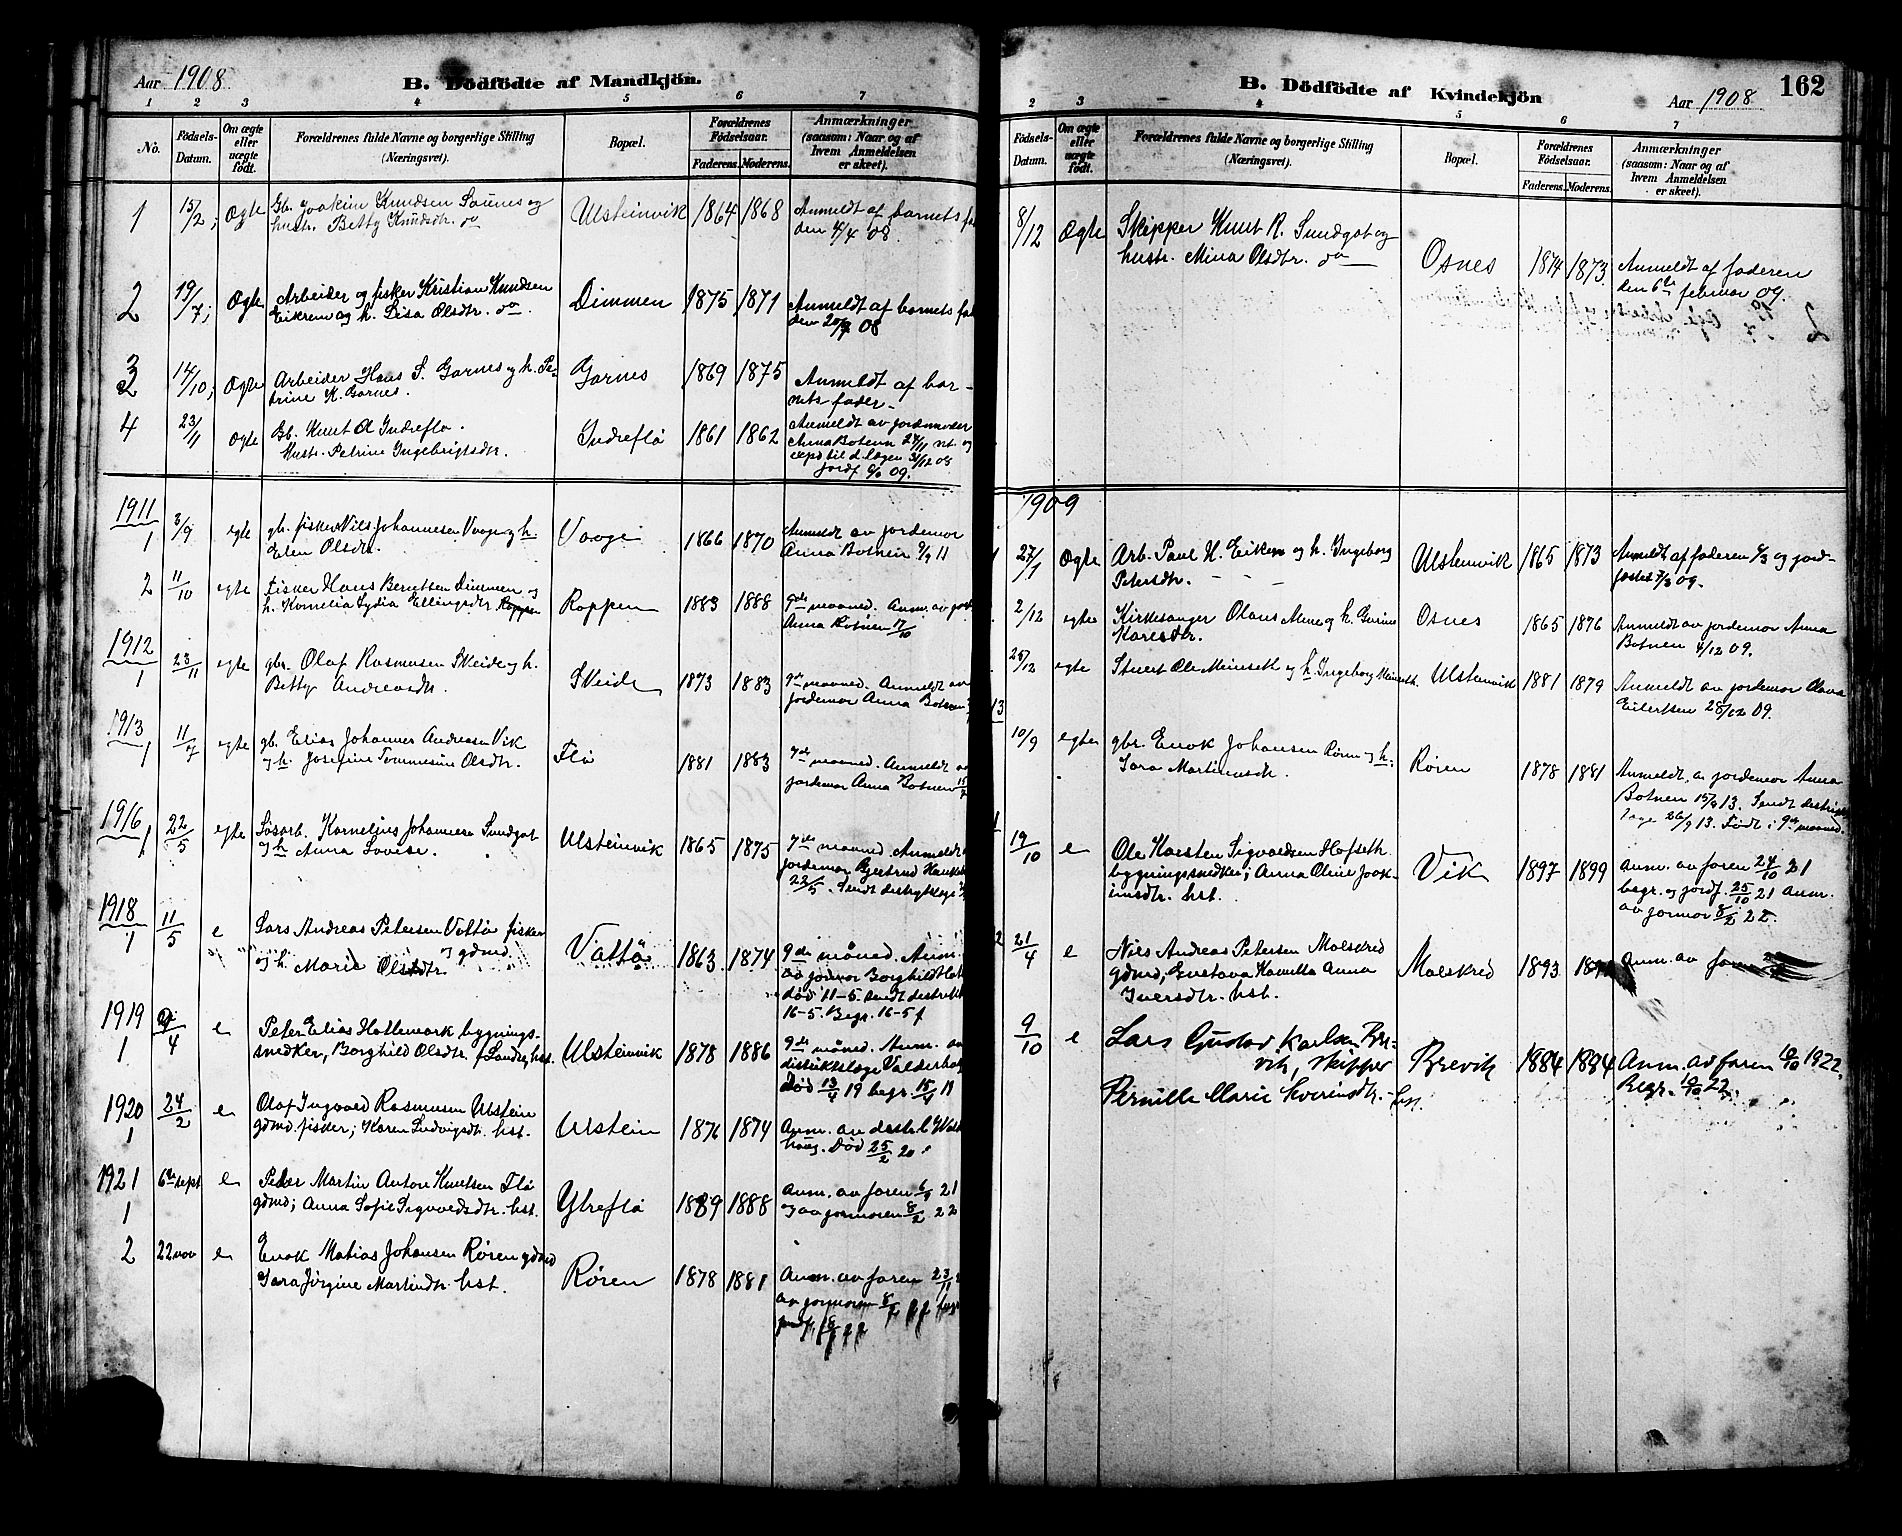 Aar 1908
B. Dödfödte af Mandkjön.
1 2 3 4 5 6 7
No.
Födsels-Datum.
Om ægte eller uægte födt.
Forældrenes fulde Navne og borgerlige Stilling
(Næringsvei).
Bopæl.
Forældrenes Födselsaar.
Faderens. Moderens.
Anmærkninger
(saasom: Naar og af
hvem Anmeldelsen
er skeet).
1 15/2; Ægte Gb. Joakim Knudsen Saunes og Ulsteinvik 1864 1868 Anmeldt af barnets
hustr. Betty Knudsdtr. do den 4/4 08.
2 19/7; Ægte Arbeider og fisker Kristian Knudsen Dimmen 1875 1871 Anmeldt af barnets
Eikrem og h. Lisa Olsdtr. do. den 20/7 08
3 14/10; Ægte Arbeider Hans S. Garnes og h. Pe- Garnes 1869 1875 Anmeldt af bar-
trine K. Garnes. nets fader.
4 23/11 Ægte Gb. Knut A Indreflø. Indreflø 1861 1862 Anmeldt av jordemoder
Hustr. Petrine Ingebrigtsdtr. Anna Botnen 24/11 nt. og
til d.lægen 31/12 08
jordf. 09.
1911
1 3/9 egte gb. fisker Nils Johannesen Vaage og h. Vaage 1866 1870 Anmeldt av jordemor
Elen Olsdtr. Anna Botnen 9/9 11
2 11/10 egte Fisker Hans Berntsen Dimmen og Roppen 1883 1888 9de maaned. Anm. av jord.
h. Kornelia Lydia Ellingsdtr. Roppen Anna Botnen 17/10
1912
1 23/11 egte gbr. Olaf Rasmusen Skeide og h. Skeide 1873 1883 9de maaned. Anmeldt av
Betty Andreasdtr. jordemor Anna Botnen
1913
1 11/7 egte gb. Elias Johannes Andreasen Vik Flø 1881 1883 7de maaned. Anmeldt av
og h. Josefine Tommesine Olsdtr. jordemor Anna Botnen 15/7
1916
1 22/5 egte Løsarb. Kornelius Johannesen Sundgot Ulsteinvik 1865 1875 7de maaned. Anmeldt
og h Anna Lovise. jordemor Gjertrud
22/5. Sendt distriktslæge
1918
1 11/5 e Lars Andreas Petersen Vattø fisker Vattø 1863 1874 9de måned. Anm.
og h. Marie Olsdtr. og gdmd. av jordmor Borghild
død 11-5. Sendt distrikt
16-5. Begr. 16-5
1919
1 9/4 e Peter Elias Hattemark bygnings- Ulsteinvik 1878 1886 9de måned. Anm. av
snedker, Borghild Olsdtr. f. Landre, hst. distriktslæge Valderhaug
Død 13/4 19 begr. 15/4 19
1920
1 24/2 e Olaf Ingvard Rasmusen Ulstein Ulstein 1876 1874 Anm. av distr.l
gdmd. fisker; Karen Ludvigsdtr. hst. haug. Død 25/2 20
1921
1 6te sept e Peder Martin Anton Knutsen Flø Ytreflø 1889 1888 Anm. av faren 6/9 21
gdmd; Anna Sofie Sigvaldsdtr. hst. og av jormoren 8/2 22
2 22 nov e Enok Matias Johansen Røren gdmd Røren 1878 1881 Anm. av faren 23/11
Sara Jørgine Martindtr. hst. av jormoren 8/2
B. Dödfödte af Kvindekjön
Aar 1908
162
2 3 4 5 6 7
Födsels-Datum.
Om ægte eller uægte födt.
Forældrenes fulde Navne og borgerlige Stilling
(Næringsvei).
Bopæl.
Forældrenes Födselsaar.
Faderens. Moderens.
Anmærkninger
(saasom: Naar og af
hvem Anmeldelsen
er skeet).
8/12 Ægte Skipper Knut R. Sundgot og Osnes 1874 1873 Anmeldt af faderen
hustr. Mina Olsdtr. do den 6te februar 09.
1909
1 27/1 Ægte Arb. Paul H. Eikrem og h. Ingeborg Ulstenvik 1865 1873 Anmeldt af faderen 6/3 og jord-
Petersdtr. fæstet 7/3 09.
2/12 egte Kirkesanger Olaus Mene og h. Gurine Osnes 1865 1876 Anmeldt av jordemor Anna
Karesdtr. Botnen 4/12 09.
25/12 egte Stuert Ole Meinseth og h Ingeborg Meinseth. Ulstenvik 1881 1879 Anmeldt av jordemor Olava
Eilertsen 28/12 09.
13
10/9 egte gbr. Enok Johansen Røren og h: Røren 1878 1881 Anmeldt av jordemor Anna
Sara Martinusdtr. Botnen 15/9 13. Sendt distrikts
læge 26/9 13. Født i 9de maaned.
1 19/10 e Ole Karsten Sigvaldsen Hofseth Vik 1897 1899 anm. av faren 24/10 21
bygningsnedker; Anna Oline Joak- begr. og jordf. 25/10 21 Anm.
imsdtr. hst. av jormor 8/2 22.
2 21/4 e Nils Andreas Petersen Molskred Molskred 1893 Anm. av faren
gdmd, Gustava Kamilla Anna
Iversdtr. hst.
9/10 e Lars Gustav Karlsen Bre- Brevik 1884 1884 Anm. av faren 10/10 1922,
vik, skipper Begr. 10/10 22.
Pernille Marie Sverinsdtr. - hst.